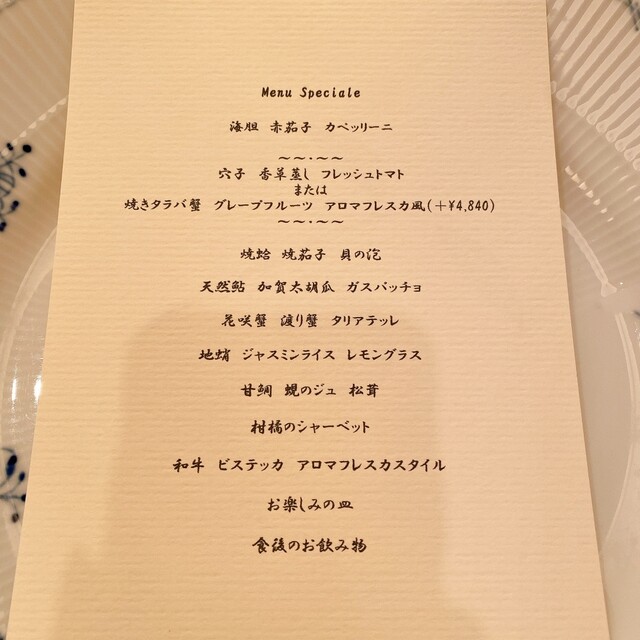 Menu Speciale
海胆 赤茄子 カペッリーニ
～～・～～
穴子 香草蒸し フレッシュトマト
または
焼きタラバ蟹 グレープフルーツ アロマフレスカ風(＋¥4,840)
～～・～～
焼蛤 焼茄子 貝の泡
天然鮎 加賀太胡瓜 ガスパッチョ
花咲蟹 渡り蟹 タリアテッレ
地蛸 ジャスミンライス レモングラス
甘鯛 蜆のジュ 松茸
柑橘のシャーベット
和牛 ビステッカ アロマフレスカスタイル
お楽しみの皿
食後のお飲み物